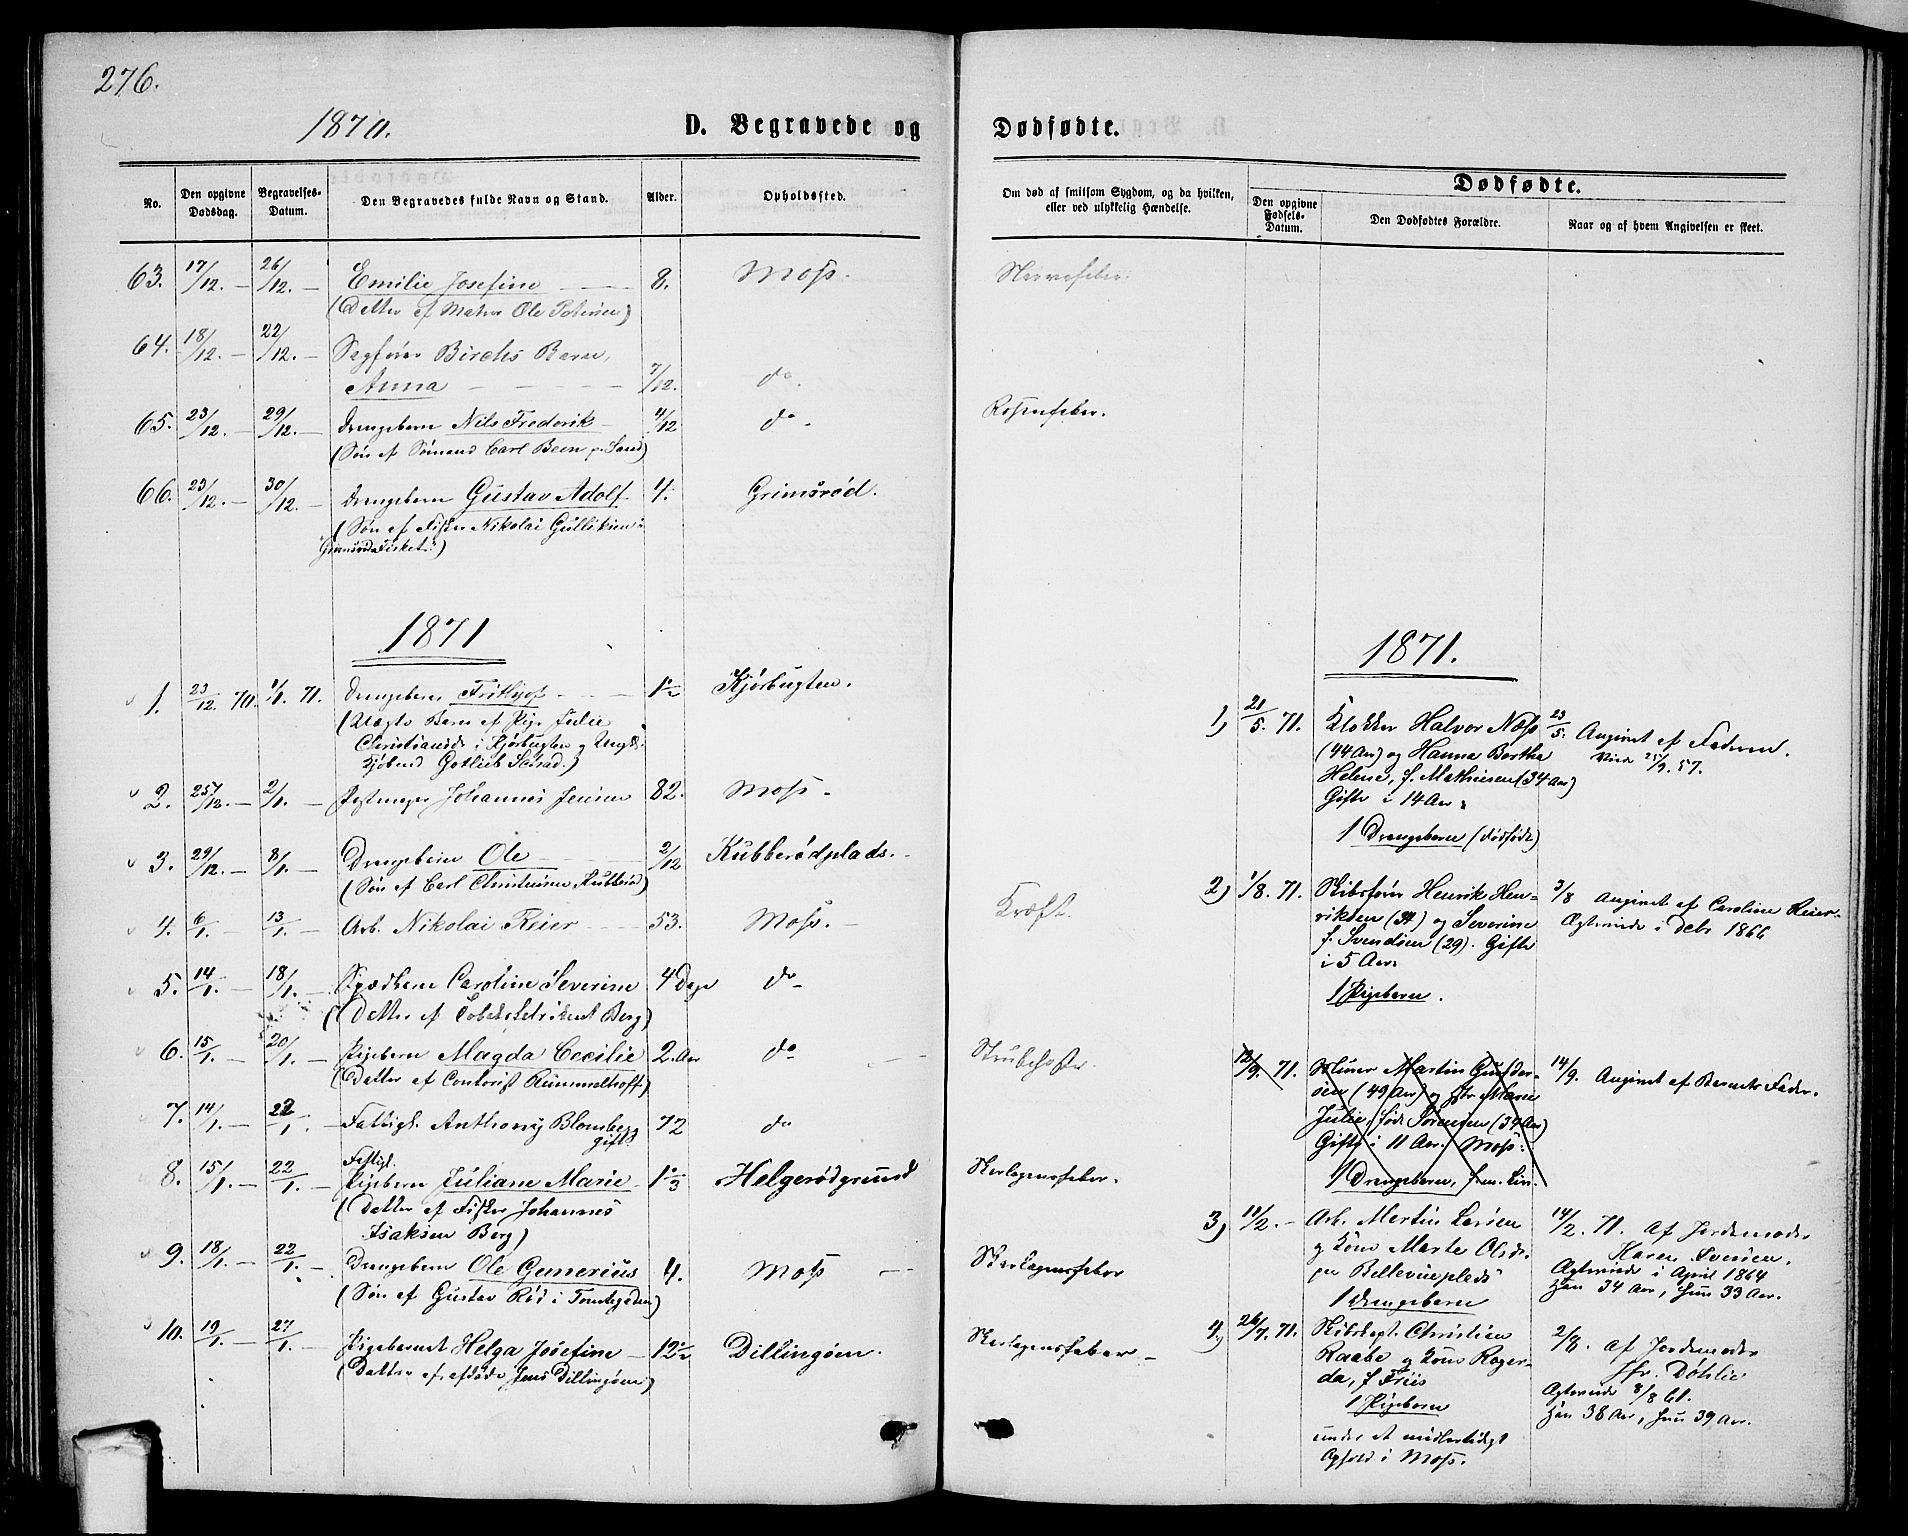 276.
1870.
D. Begravede og
No.
Den opgivne Dødsdag.
Begravelses-Datum.
Den Begravedes fulde Navn og Stand.
Alder.
Opholdssted.
63. 17/12. — 26/12. — Emilie Josefine — 8. Moss.
(Datter af Matros Ole Petersen)
64. 18/12. — 22/12. — Sagfører Birchs Barn,
Anna — 7/12. do.
65. 23/12. — 29/12. — Drengebarn Nils Frederik — 4/12 do.
(Søn af Sømand Carl Been p. Sand)
66. 23/12. — 30/12. — Drengebarn Gustav Adolf 4. Grimsrød.
(Søn af Fisker Nikolai Gulliksen
1871
1. 23/12. 70. 1/1. 71. Drengebarn Frithjof — Kjørbugten.
(Uægte Barn af Pige Julie
Christiansd. i Kjørbugten og Ungk.
Gotlieb
2. 25/12. — 2/1. — Johannes Jensen 82. Moss.
3. 29/12. — 8/1. — Drengebarn Ole — 2/12 Kubberødplads.
(Søn af Carl Christensen Kubberød)
4. 6/1. — 13/1. — Arb. Nikolai Reier — 53. Moss. —
5. 14/1. — 18/1. — Spædbarn Caroline Severine 4 Dage do
(Datter af Tobaksfabrikant Berg)
6. 15/1. — 20/1. — Pigebarn Magda Cecilie 2. Aar do —
(Datter af Contorist Rummelhoff)
7. 14/1. — 22/1. — Fattigl. Anthony Blomberg 72 do
gift
8. 15/1. — 22/1. — Fattigl.
Pigebarn Juliane Marie Helgerødgrund
(Datter af Fisker Johannes
Isaksen Berg)
9. 18/1. — 22/1. — Drengebarn Ole Gemerius 4. Moss —
(Søn af Gustav Rød i Tomtegaden)
10. 19/1. — 27/1. — Pigebarnet Helga Josefine — Dillingøen.
(Datter af afdøde Jens Dillingøen)
Dødfødte.
Om død af smitsom Sygdom, og da hvilken, eller ved ulykkelig Hændelse.
Dødfødte.
Den opgivne Fødsels-Datum.
Den Dødfødtes Forældre.
Naar og af hvem Angivelsen er skeet.
Nervefeber.
Rosenfeber.
1871.
1) 21/5. 71. Klokker Halvor Næss 23/5. Angivet af Faderen.
(44 Aar) og Hanna Bertha Viede 25/9. 57.
Helene, f. Mathiesen (34 Aar)
Gifte i 14 Aar
1 Drengebarn (dødfødt)
Kræft.
2) 1/8. 71. Skibsfører Henrik Hen- 3/8 Angivet af Caroline Reier.
riksen (34) og Severine Ægteviede i Debr 1866
f. Svendsen (29). Gifte
i 5 Aar
1 Pigebarn.
Strubehoste
12/9. 71. Martin 14/9. Angivet af Barnets Fader.
(49 Aar) og Marie
Julie, født Sørensen (34 Aar)
Gifte i 11 Aar. Moss.
1 Drengebarn,
Skarlagensfeber.
3) 2. — Arb. Martin Larsen 14/2. 71. af Jordemoder
og Kone Marte Olsd. Karen Svensen.
paa Bellevueplads Ægteviede i April 1864
1 Drengebarn Han 34 Aar, Hun 33 Aar.
Skarlagensfeber
Skarlagensfeber —
4) 26/7. 71. Skibskapt. Christian 2/8. af Jordemoder
Raabe og Kone Roger- Jfr. Døhlie
da, f. Friis Ægteviede 8/8 61.
1 Pigebarn Han 38 Aar, Hun 39 Aar.
under et midlertidigt
Ophold i Moss.